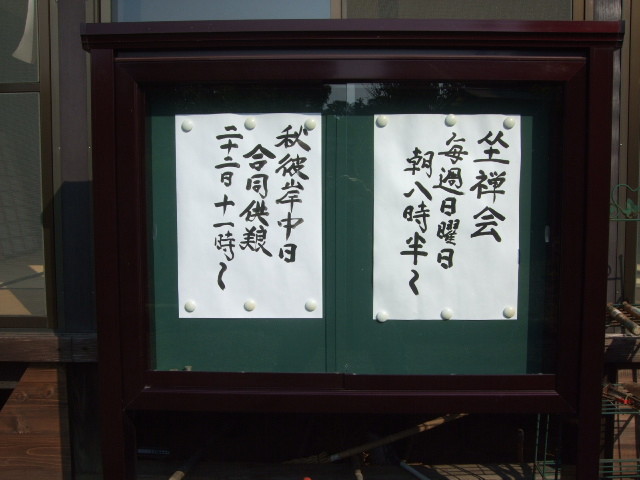 坐禅会
毎週日曜日
朝八時半〜
秋彼岸中日
合同供養
二十二日十一時〜